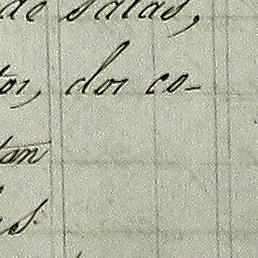 de salas,
tor, dos co-
tan
s.